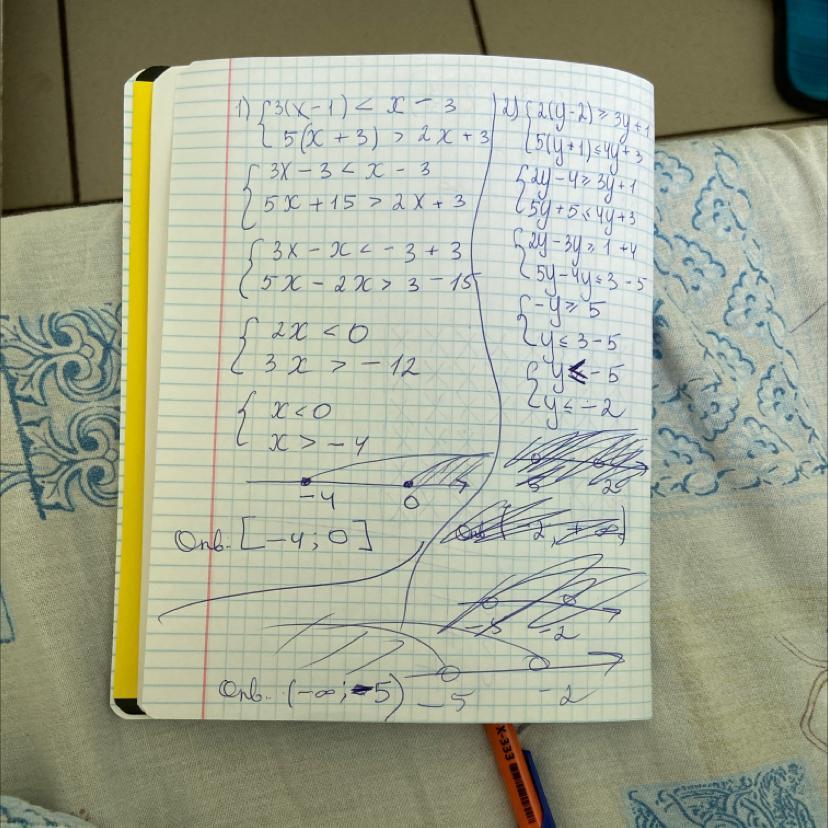 1) {3(x-1) < x - 3
5(x + 3) > 2x + 3
{3x - 3 < x - 3
5x + 15 > 2x + 3
{3x - x < - 3 + 3
5x - 2x > 3 - 15
{2x < 0
3x > - 12
{x < 0
x > - 4
-4 0
Отв. [-4; 0]
2) {2(y-2) ≥ 3y+1
5(y+1) ≤ 4y+3
{2y-4 ≥ 3y+1
5y+5 ≤ 4y+3
{2y-3y ≥ 1+4
5y-4y ≤ 3-5
{-y ≥ 5
y ≤ 3-5
{y ≤ -5
y ≤ -2
-5 -2
-5 -2
Отв. (-∞; -5)
X-333